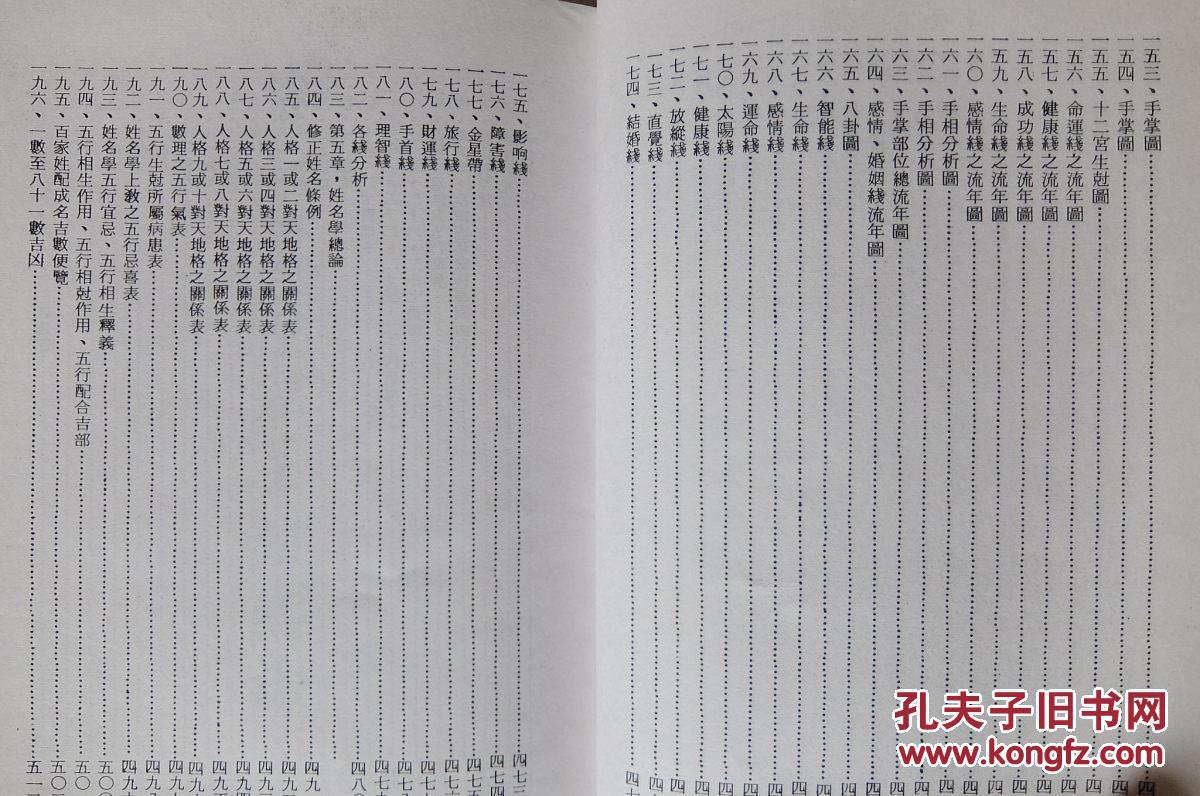 一五三、手掌圖……四
一五四、手掌圖……四
一五五、十二宮生尅圖……四
一五六、命運綫之流年圖……四
一五七、健康綫之流年圖……四
一五八、成功綫之流年圖……四
一五九、生命綫之流年圖……四
一六〇、感情綫之流年圖……四
一六一、手相分析圖……四
一六二、手相分析圖……四
一六三、手掌部位總流年圖……四
一六四、感情、婚姻綫流年圖……四
一六五、八卦圖……四
一六六、智能綫……四
一六七、生命綫……四
一六八、感情綫……四
一六九、運命綫……四
一七〇、太陽綫……四
一七一、健康綫……四
一七二、放縱綫……四
一七三、直覺綫……四
一七四、結婚綫……四
一七五、影响綫……四七三
一七六、障害綫……四七四
一七七、金星帶……四七五
一七八、旅行綫……四七
一七九、財運綫……四七
一八〇、手首綫……四七
一八一、理智綫……四七
一八二、各綫分析……四八〇
一八三、第五章，姓名學總論
一八四、修正姓名條例……四九
一八五、人格一或二對天地格之關係表……四九
一八六、人格三或四對天地格之關係表……四九
一八七、人格五或六對天地格之關係表……四九
一八八、人格七或八對天地格之關係表……四九
一八九、人格九或十對天地格之關係表……四九
一九〇、數理之五行氣表……四九
一九一、五行生尅所屬病患表……四九
一九二、姓名學上教之五行忌喜表……四九
一九三、姓名學五行宜忌、五行相生釋義……五〇
一九四、五行相生作用、五行相尅作用、五行配合吉部……五〇
一九五、百家姓配成名吉數便覽……五〇
一九六、一數至八十一數吉凶……五一
孔夫子旧书网
www.kongfz.com